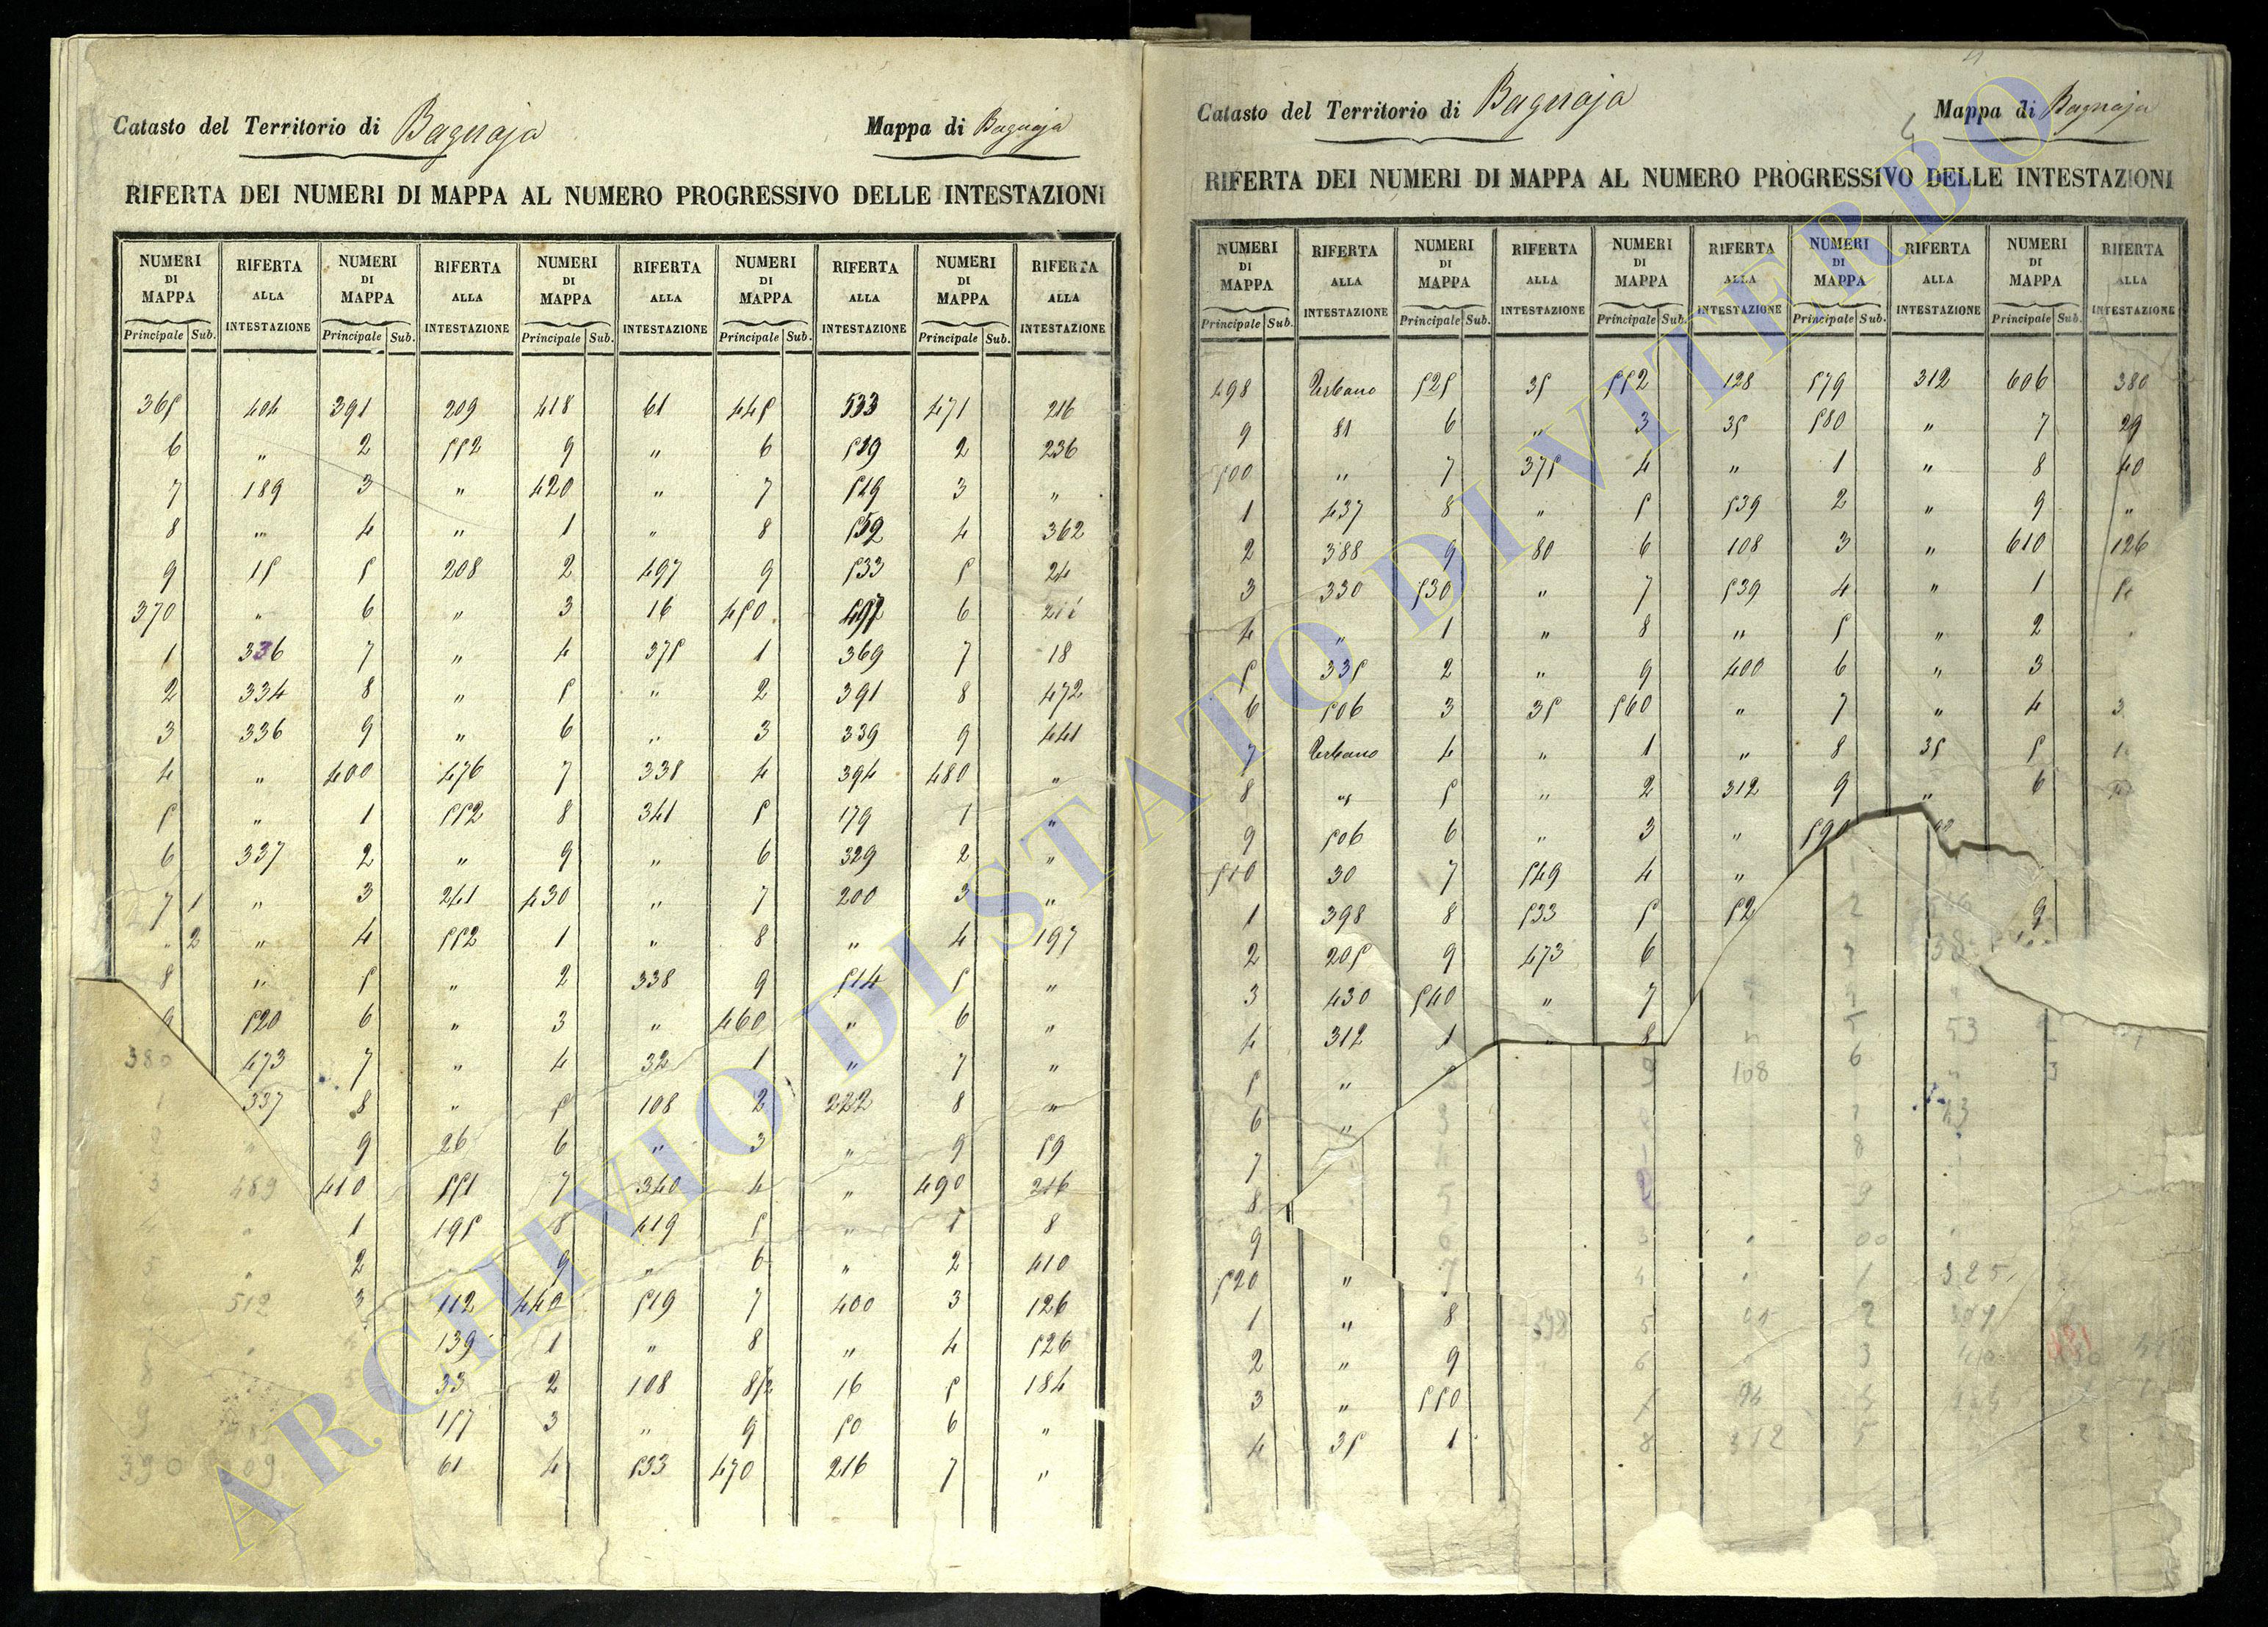 Catasto del Territorio di Bagnaja
Mappa di Bagnaja
RIFERTA DEI NUMERI DI MAPPA AL NUMERO PROGRESSIVO DELLE INTESTAZIONI
NUMERI DI MAPPA RIFERTA ALLA INTESTAZIONE NUMERI DI MAPPA RIFERTA ALLA INTESTAZIONE NUMERI DI MAPPA RIFERTA ALLA INTESTAZIONE NUMERI DI MAPPA RIFERTA ALLA INTESTAZIONE NUMERI DI MAPPA RIFERTA ALLA INTESTAZIONE
Principale Sub. Principale Sub. Principale Sub. Principale Sub. Principale Sub.
365 404 391 209 418 61 445 533 471 216
6 „ 2 552 9 „ 6 2 236
7 189 3 „ 420 „ 7 3 „
8 „ 4 „ 1 „ 8 4 362
9 15 5 208 2 497 9 533 5 24
370 „ 6 „ 3 16 450 6
1 336 7 „ 4 375 1 369 7 18
2 334 8 „ 5 „ 2 391 8 472
3 336 9 „ 6 „ 3 339 9 441
4 „ 400 476 7 338 4 394 480 „
5 „ 1 552 8 341 5 179 1 „
6 337 2 „ 9 „ 6 329 2 „
7 1 „ 3 241 430 „ 7 200 3 „
„ 2 „ 4 552 1 „ 8 „ 4 197
8 „ 5 „ 2 338 9 514 5 „
9 520 6 „ 3 „ 460 „ 6 „
380 473 7 „ 4 32 1 „ 7 „
1 337 8 „ 5 108 2 222 8 „
2 „ 9 26 6 „ 3 „ 9 59
3 489 410 551 7 340 4 „ 490 216
4 „ 1 195 8 419 5 „ 1 8
5 „ 2 9 „ 6 „ 2 410
512 3 112 440 519 7 400 3 126
139 1 „ 8 „ 4 526
8 33 2 108 8/2 16 5 184
9 157 3 „ 9 50 6 „
390 61 4 533 470 216 7 „
Catasto del Territorio di Bagnaja
Mappa di Bagnaja
RIFERTA DEI NUMERI DI MAPPA AL NUMERO PROGRESSIVO DELLE INTESTAZIONI
NUMERI DI MAPPA RIFERTA ALLA INTESTAZIONE NUMERI DI MAPPA RIFERTA ALLA INTESTAZIONE NUMERI DI MAPPA RIFERTA ALLA INTESTAZIONE NUMERI DI MAPPA RIFERTA ALLA INTESTAZIONE NUMERI DI MAPPA RIFERTA ALLA INTESTAZIONE
Principale Sub. Principale Sub. Principale Sub. Principale Sub. Principale Sub.
498 Urbano 525 35 552 128 579 312 606 380
9 81 6 „ 3 35 580 „ 7 29
500 „ 7 375 4 „ 1 „ 8 40
1 437 8 „ 5 539 2 „ 9 „
2 388 9 80 6 108 3 „ 610 126
3 330 530 „ 7 539 4 „ 1
4 „ 1 „ 8 „ 5 „ 2
5 335 2 „ 9 400 6 „ 3
6 506 3 35 560 „ 7 „ 4
7 Urbano 4 „ 1 „ 8 35 5
8 „ 5 „ 2 312 9 „ 6
9 506 6 „ 3 „ 590
510 30 7 549 4 „
1 398 8 533 5 2 9
2 205 9 473 6 3
3 430 540 „ 7
4 312 1 8 5 53
5 „ 9 108 6 3
6 „ 3
7 4 8
8 5 2 9
9 6 3
520 „ 7 4 1 325
1 „ 8 398 5 2
2 „ 9 6 3
3 „ 550
4 35 1 8 312 5 2
ARCHIVIO DI STATO DI VITERBO